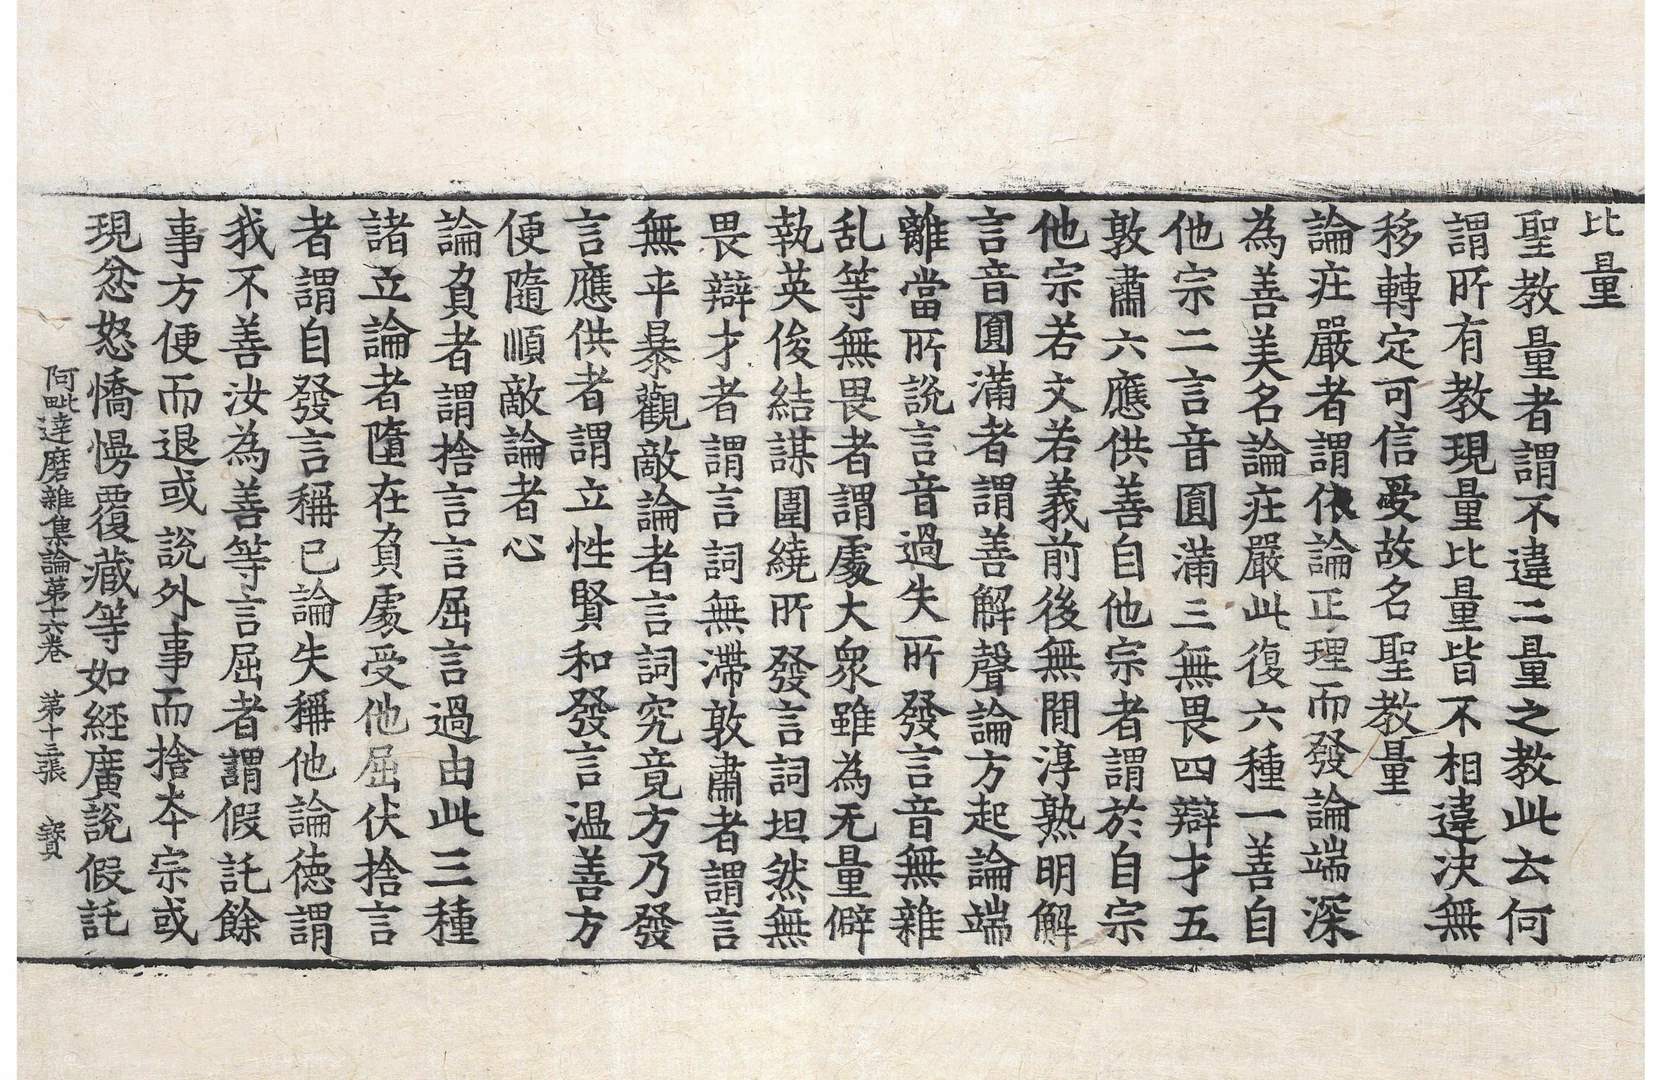 比量
聖教量者謂不違二量之教此云何
謂所有教現量比量皆不相違决無
移轉定可信受故名聖教量
論莊嚴者謂依論正理而發論端深
為善美名論莊嚴此復六種一善自
他宗二言音圓滿三無畏四辯才五
敦肅六應供善自他宗者謂於自宗
他宗若文若義前後無閒淳熟明解
言音圓滿者謂善解聲論方起論端
離當所說言音過失所發言音無雜
乱等無畏者謂處大衆雖為无量僻
執英俊結謀圍繞所發言詞坦然無
畏辯才者謂言詞無滯敦肅者謂言
無卒暴觀敵論者言詞究竟方乃發
言應供者謂立性賢和發言温善方
便隨順敵論者心
論負者謂捨言言屈言過由此三種
諸立論者墮在負處受他屈伏捨言
者謂自發言稱己論失稱他論徳謂
我不善汝為善等言屈者謂假託餘
事方便而退或說外事而捨夲宗或
現忿怒憍慢覆藏等如經廣說假託
阿毗達磨雜集論第十六卷　第十三張　寳